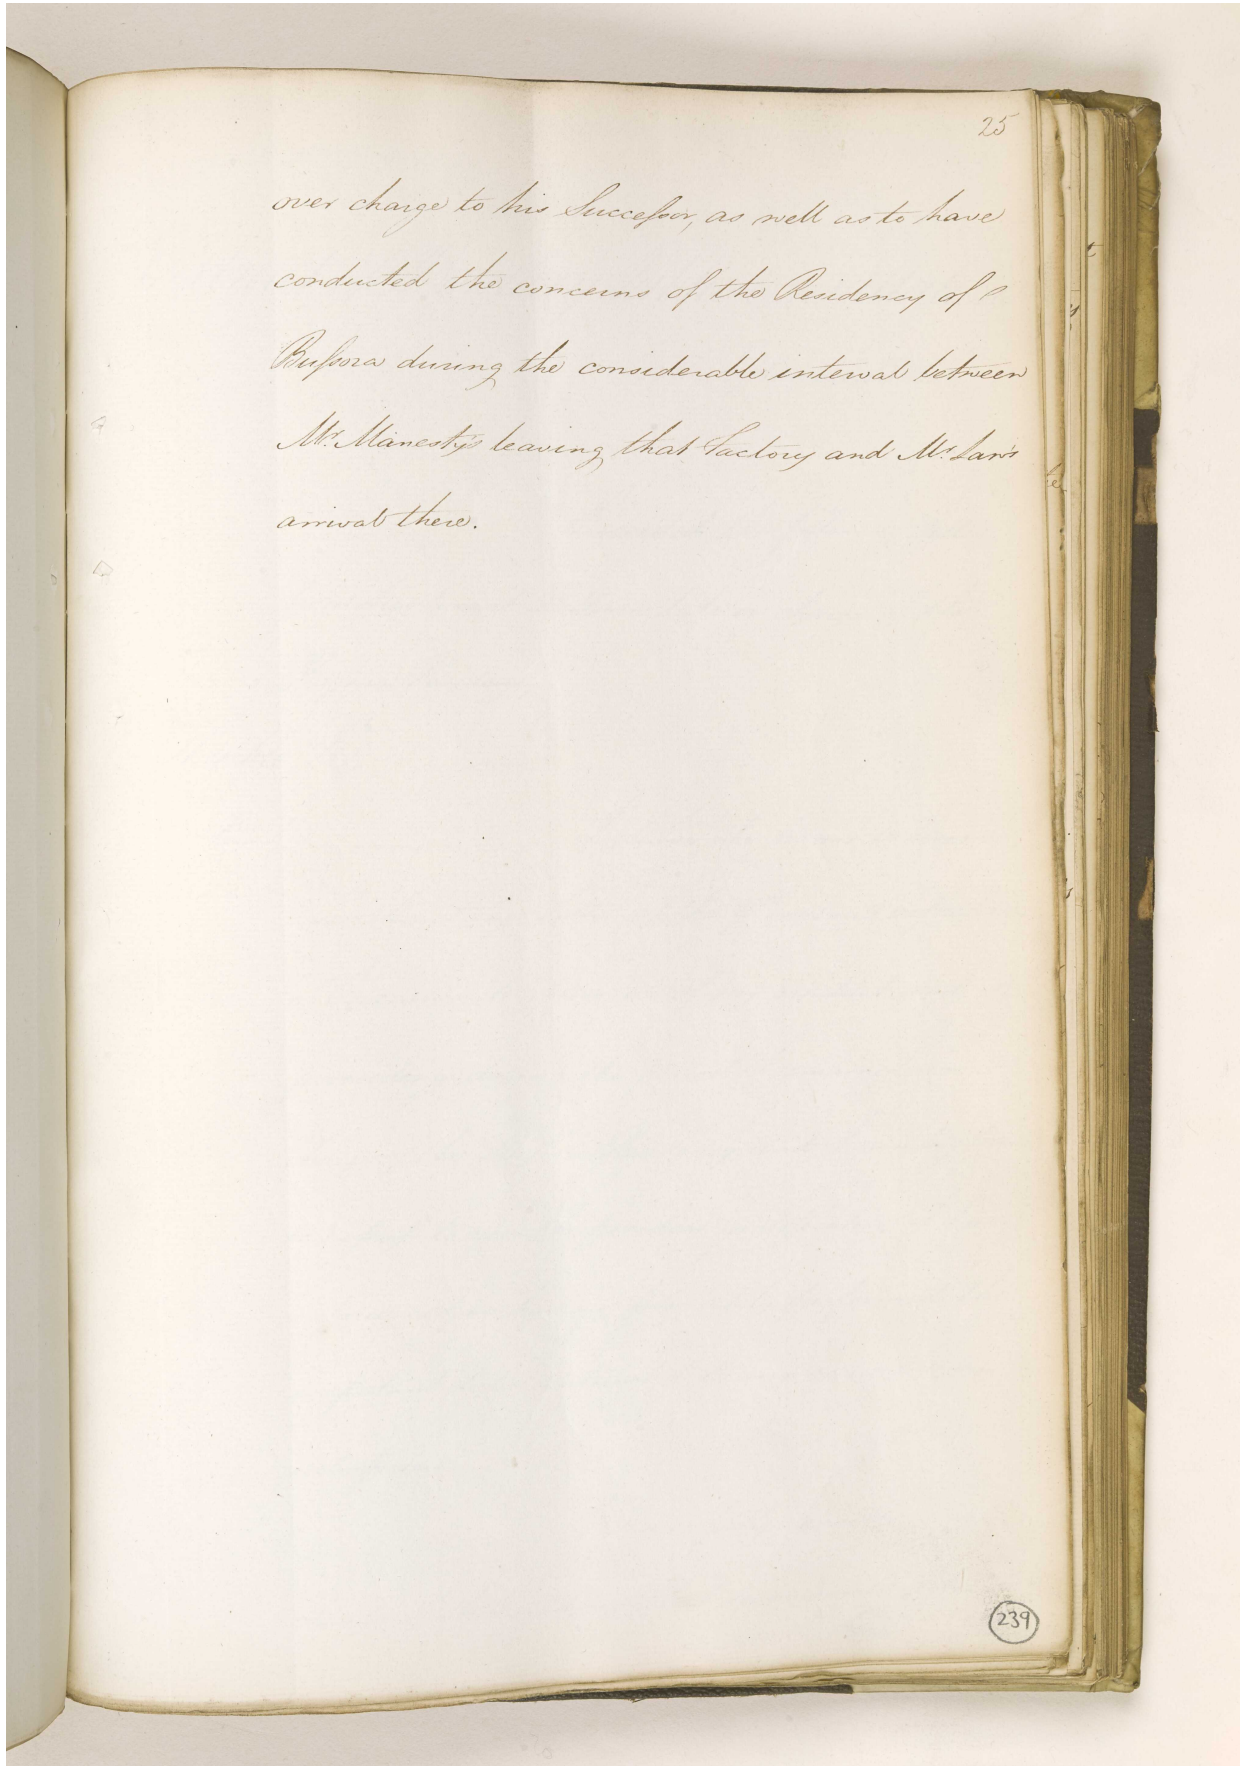 25
over charge to his Successor, as well as to have
conducted the concerns of the Residency of
Bussora during the considerable interval between
Mr. Manesty's leaving that Factory and Mr. Law's
arrival there.
239